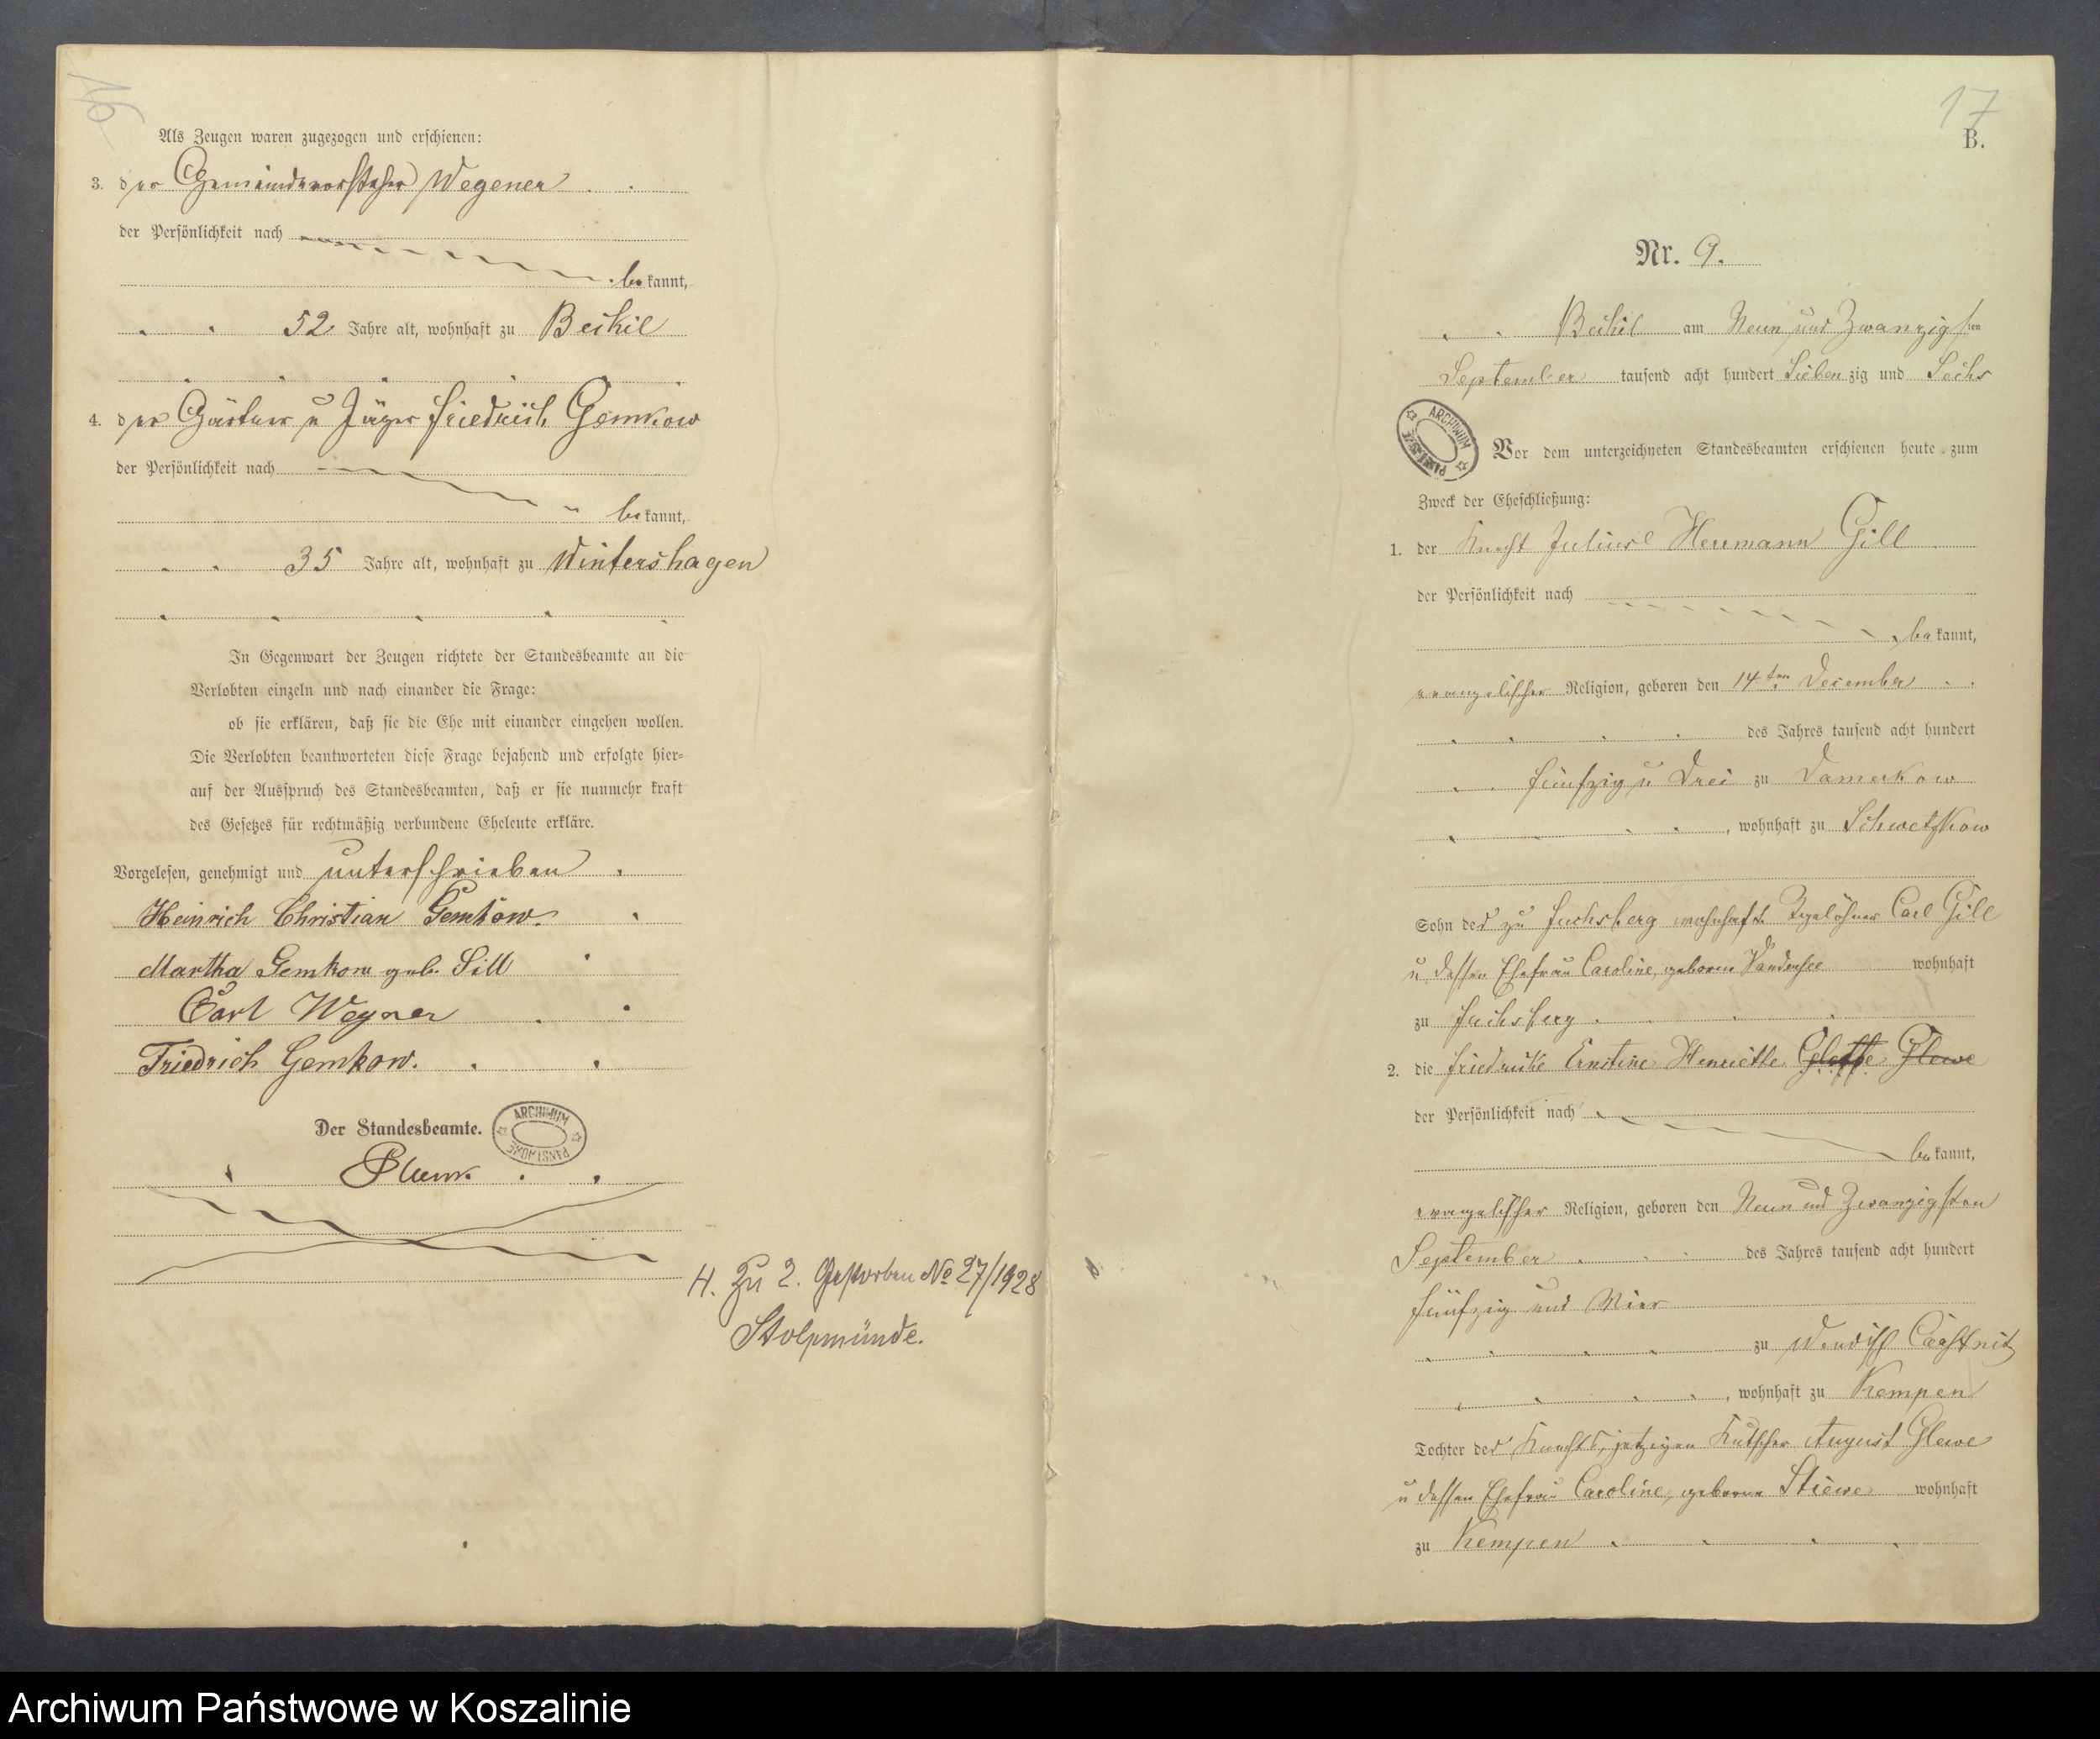 16
Als Zeugen waren zugezogen und erschienen:
3. der Gemeindevorsteher Wegener
der Persönlichkeit nach
bekannt,
52 Jahre alt, wohnhaft zu Beckel
4. der Gärtner u Jäger Friedrich Gemkow
der Persönlichkeit nach
bekannt,
35 Jahre alt, wohnhaft zu Wintershagen
In Gegenwart der Zeugen richtete der Standesbeamte an die
Verlobten einzeln und nach einander die Frage:
ob sie erklären, daß sie die Ehe mit einander eingehen wollen.
Die Verlobten beantworteten diese Frage bejahend und erfolgte hier-
auf der Ausspruch des Standesbeamten, daß er sie nunmehr kraft
des Gesetzes für rechtmäßig verbundene Eheleute erkläre.
Vorgelesen, genehmigt und unterschrieben
Heinrich Christian Gemkow.
Martha Gemkow geb. Sill
Carl Wegner
Friedrich Gemkow.
Der Standesbeamte.
ARCHIWUM
PAŃSTWOWE
H. Zu 2. Gestorben No 27/1928
Stolpmünde.
17
B.
Nr. 9.
am Neun und Zwanzigsten
September tausend acht hundert Siebenzig und Sechs
ARCHIWUM
PAŃSTWOWE
Vor dem unterzeichneten Standesbeamten erschienen heute zum
Zweck der Eheschließung:
1. der Knecht Julius Herrmann Gill
der Persönlichkeit nach
bekannt,
evangelischer Religion, geboren den 14ten December
des Jahres tausend acht hundert
fünfzig u Drei zu Damerkow
, wohnhaft zu Schwetzkow
Sohn des zu Fuchsberg wohnhaft Tagelöhner Carl Gill
u dessen Ehefrau Caroline, geborne Vandersee wohnhaft
zu Fuchsberg
2. die Friedericke Ernstine Henriette Glewe
der Persönlichkeit nach
bekannt,
evangelischer Religion, geboren den Neun und Zwanzigsten
September des Jahres tausend acht hundert
fünfzig und Vier
zu Wendisch
, wohnhaft zu Kempen
Tochter des Knechts, jetzigen Kutscher August Glewe
u dessen Ehefrau Caroline, geborne Stiewe wohnhaft
zu Kempen
Archiwum Państwowe w Koszalinie